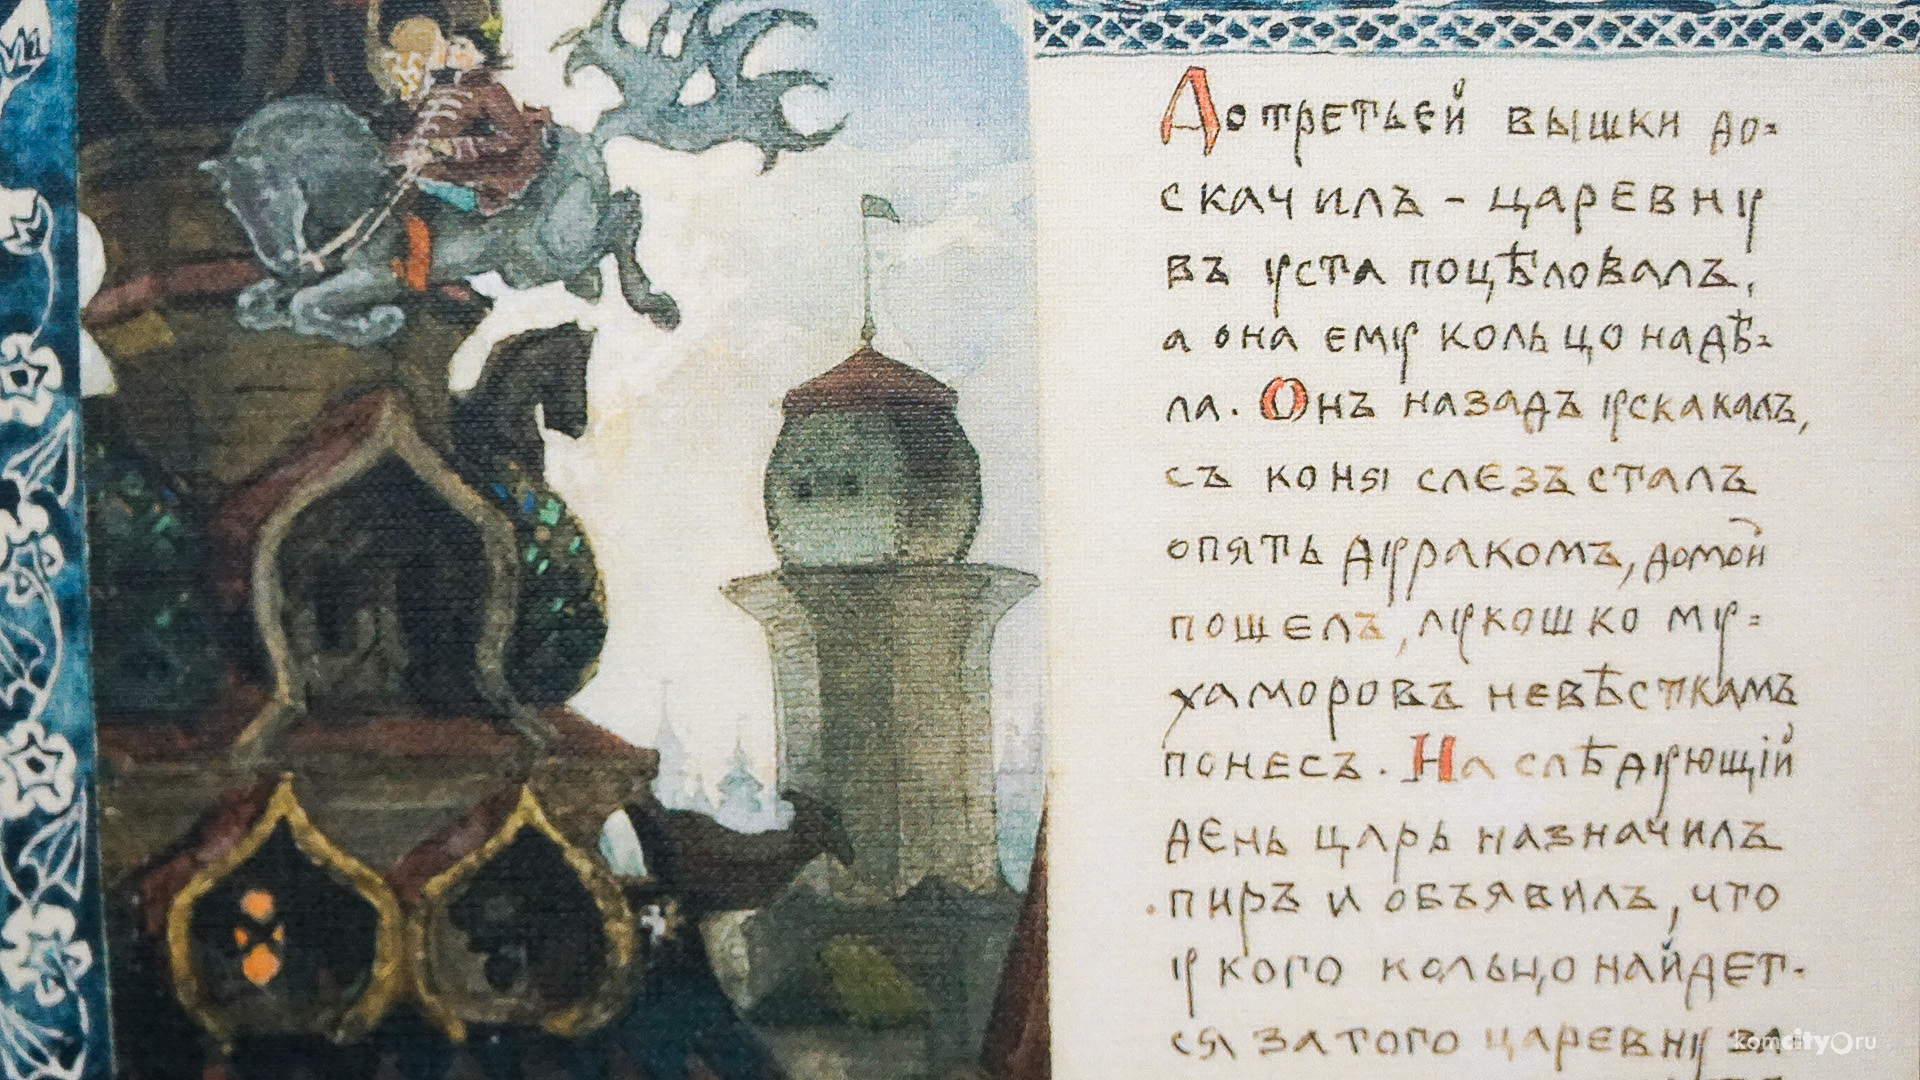 До третьей вышки до=
скачилъ - царевну
въ уста поцѣловалъ,
а она ему кольцо надѣ=
ла. Онъ назадъ ускакалъ,
съ коня слезъ сталъ
опять дурракомъ, домой
пошелъ, лукошко му=
хаморовъ невѣсткамъ
понесъ. На слѣдующій
день царь назначилъ
пиръ и объявилъ, что
у кого кольцо найдет-
ся за того царевну за
komcityOru